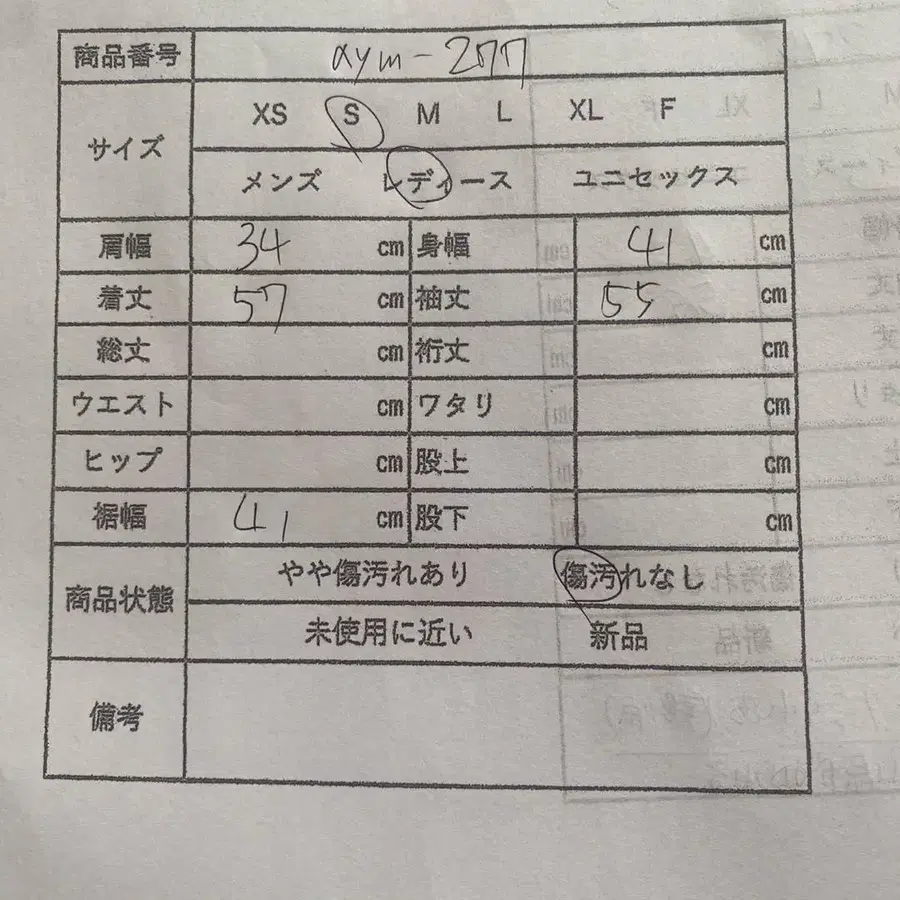 商品番号 aym-277
サイズ XS S M L XL F
メンズ レディース ユニセックス
肩幅 34 cm 身幅 41 cm
着丈 57 cm 袖丈 55 cm
総丈 cm 裄丈 cm
ウエスト cm ワタリ cm
ヒップ cm 股上 cm
裾幅 41 cm 股下 cm
商品状態 やや傷汚れあり 傷汚れなし
未使用に近い 新品
備考